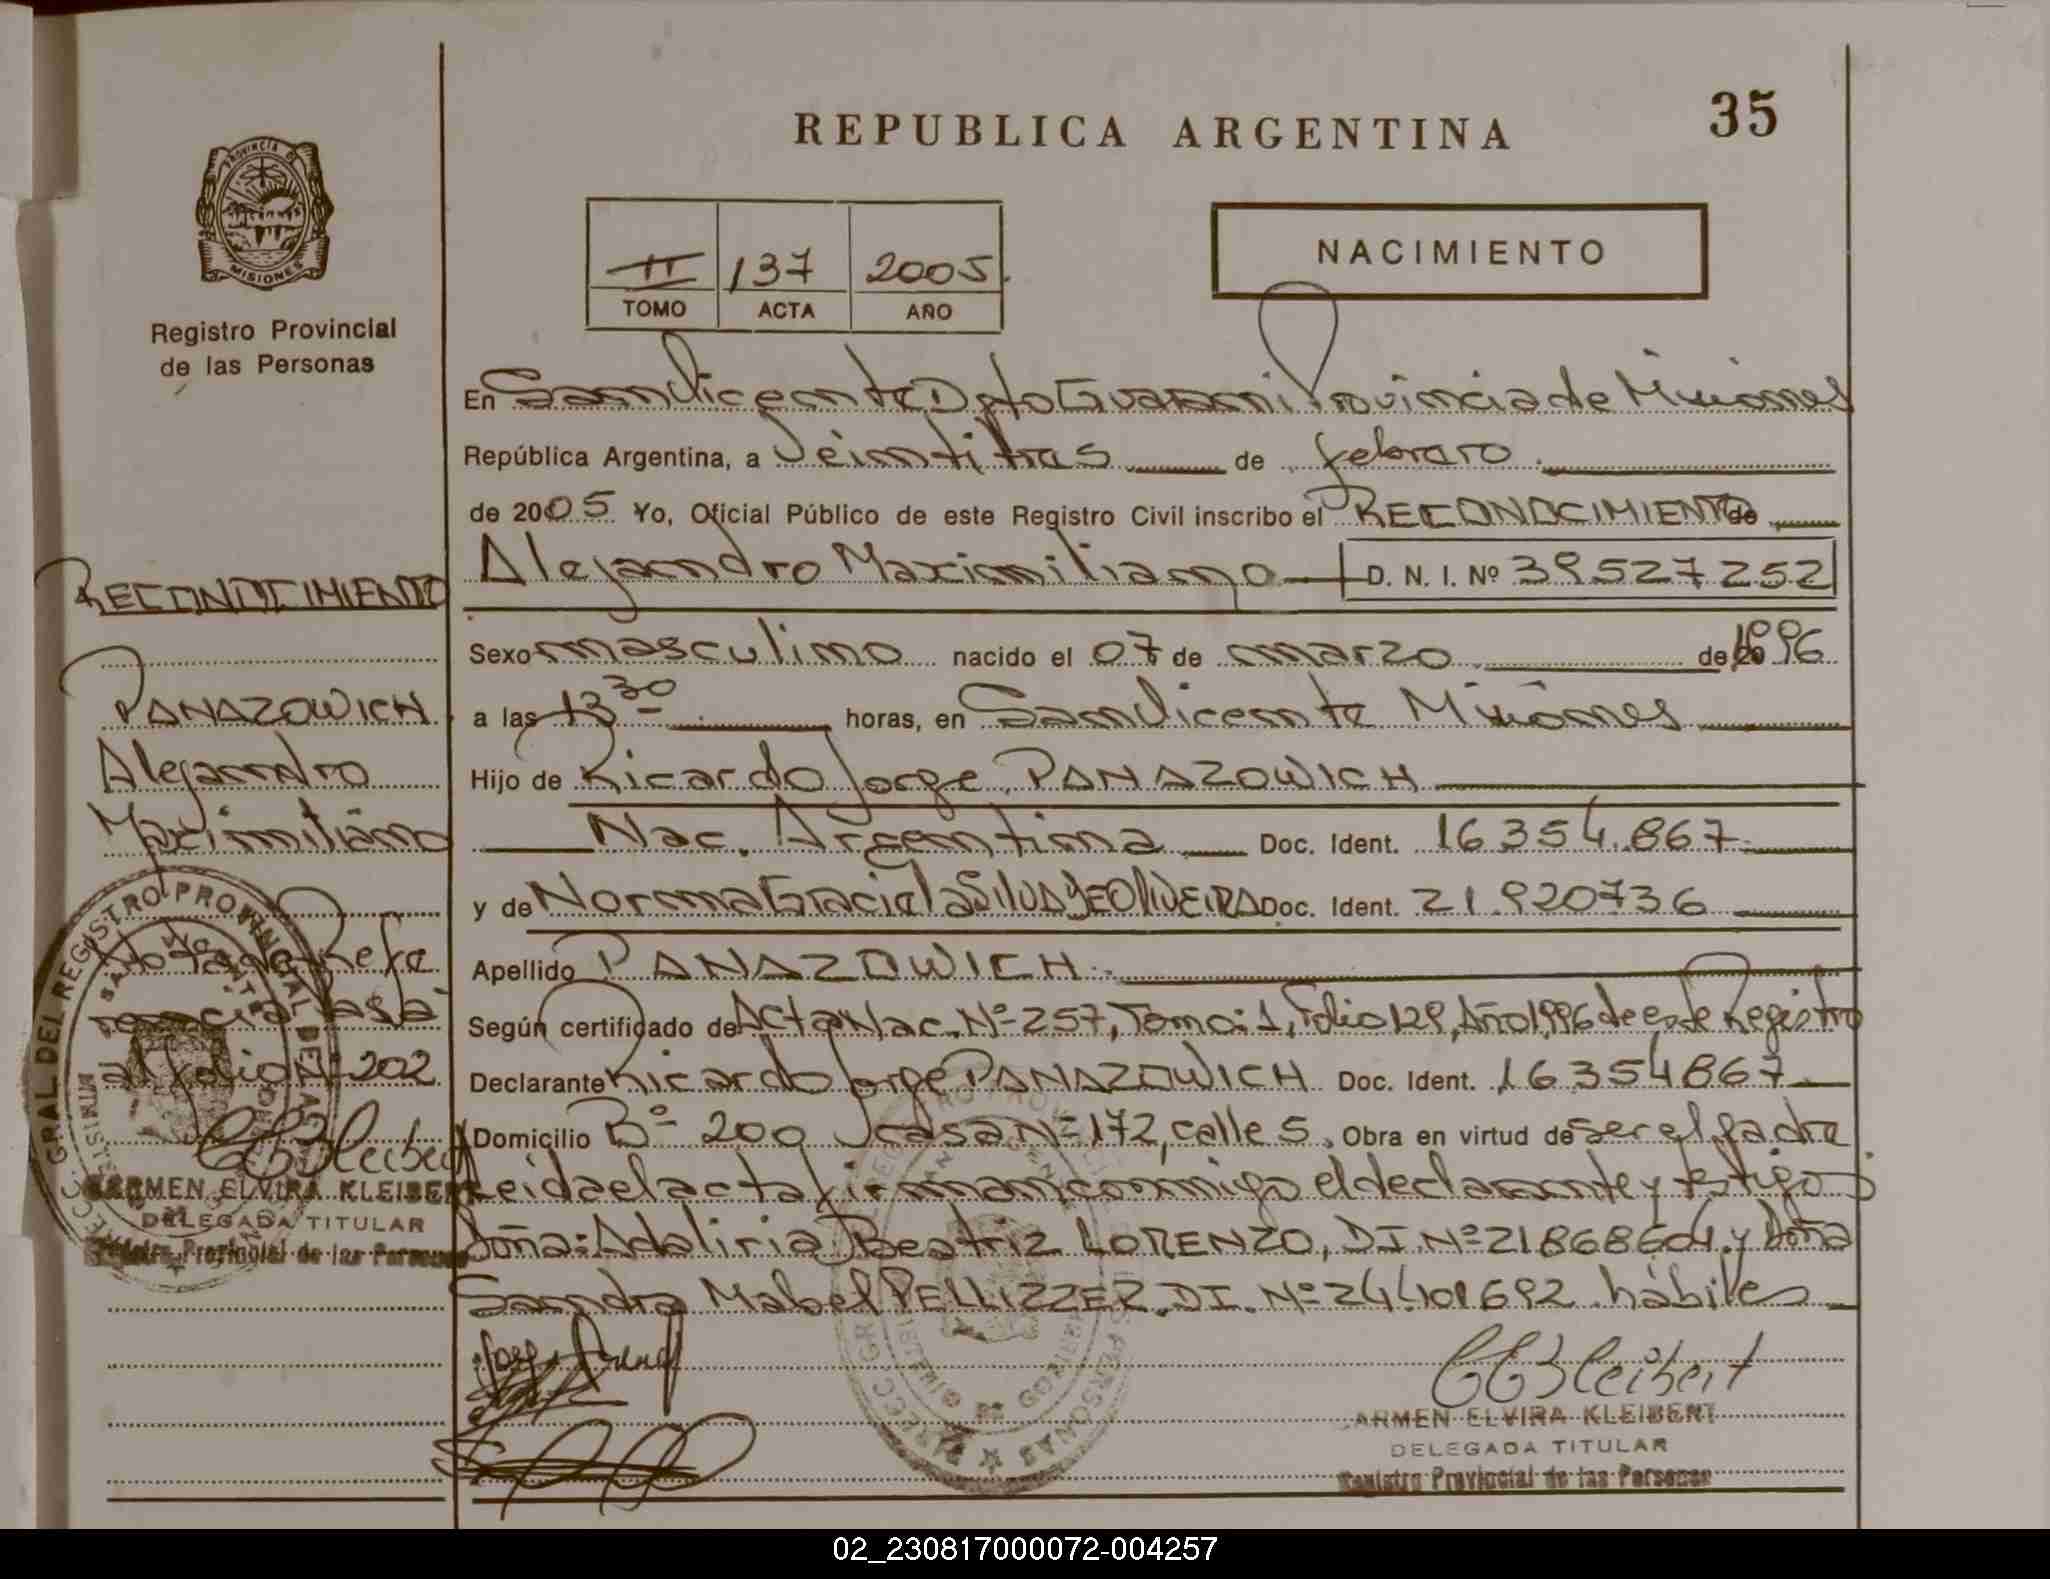 REPUBLICA ARGENTINA
35
PROVINCIA DE
MISIONES
Registro Provincial
de las Personas
II 137 2005
TOMO ACTA AÑO
NACIMIENTO
En San Vicente Dpto Guarani Provincia de Misiones
República Argentina, a Veintitres de febrero
de 2005 Yo, Oficial Público de este Registro Civil inscribo el RECONOCIMIENTO de
Alejandro Maximiliano D. N. I. Nº 39527252
Sexo masculino nacido el 07 de marzo de 1996
a las 13 30 horas, en San Vicente Misiones
Hijo de Ricardo Jorge PANAZOWICH
Nac. Argentina Doc. Ident. 16354.867
y de Norma Graciela SILVA DE OLIVEIRA Doc. Ident. 21.920736
Apellido PANAZOWICH
Según certificado de Acta Nac. Nº 257, Tomo: 1, Folio 129, Año 1996 de este Registro
Declarante Ricardo Jorge PANAZOWICH Doc. Ident. 16354867
Domicilio Bº 200 casa Nº 172, calle 5. Obra en virtud de ser el padre
Leida el acta firman conmigo el declarante y testigos
Doña: Adaliria Beatriz LORENZO, DI. Nº 21868604 y Doña
Sandra Mabel PELLIZZER DI. Nº 24401692 hábiles
CEKleibert
CARMEN ELVIRA KLEIBERT
DELEGADA TITULAR
Registro Provincial de las Personas
RECONOCIMIENTO
PANAZOWICH
Alejandro
Maximiliano
Nota de Refe
rencia Pasa
al folio Nº 202
CEKleibert
CARMEN ELVIRA KLEIBERT
DELEGADA TITULAR
Registro Provincial de las Personas
02_230817000072-004257